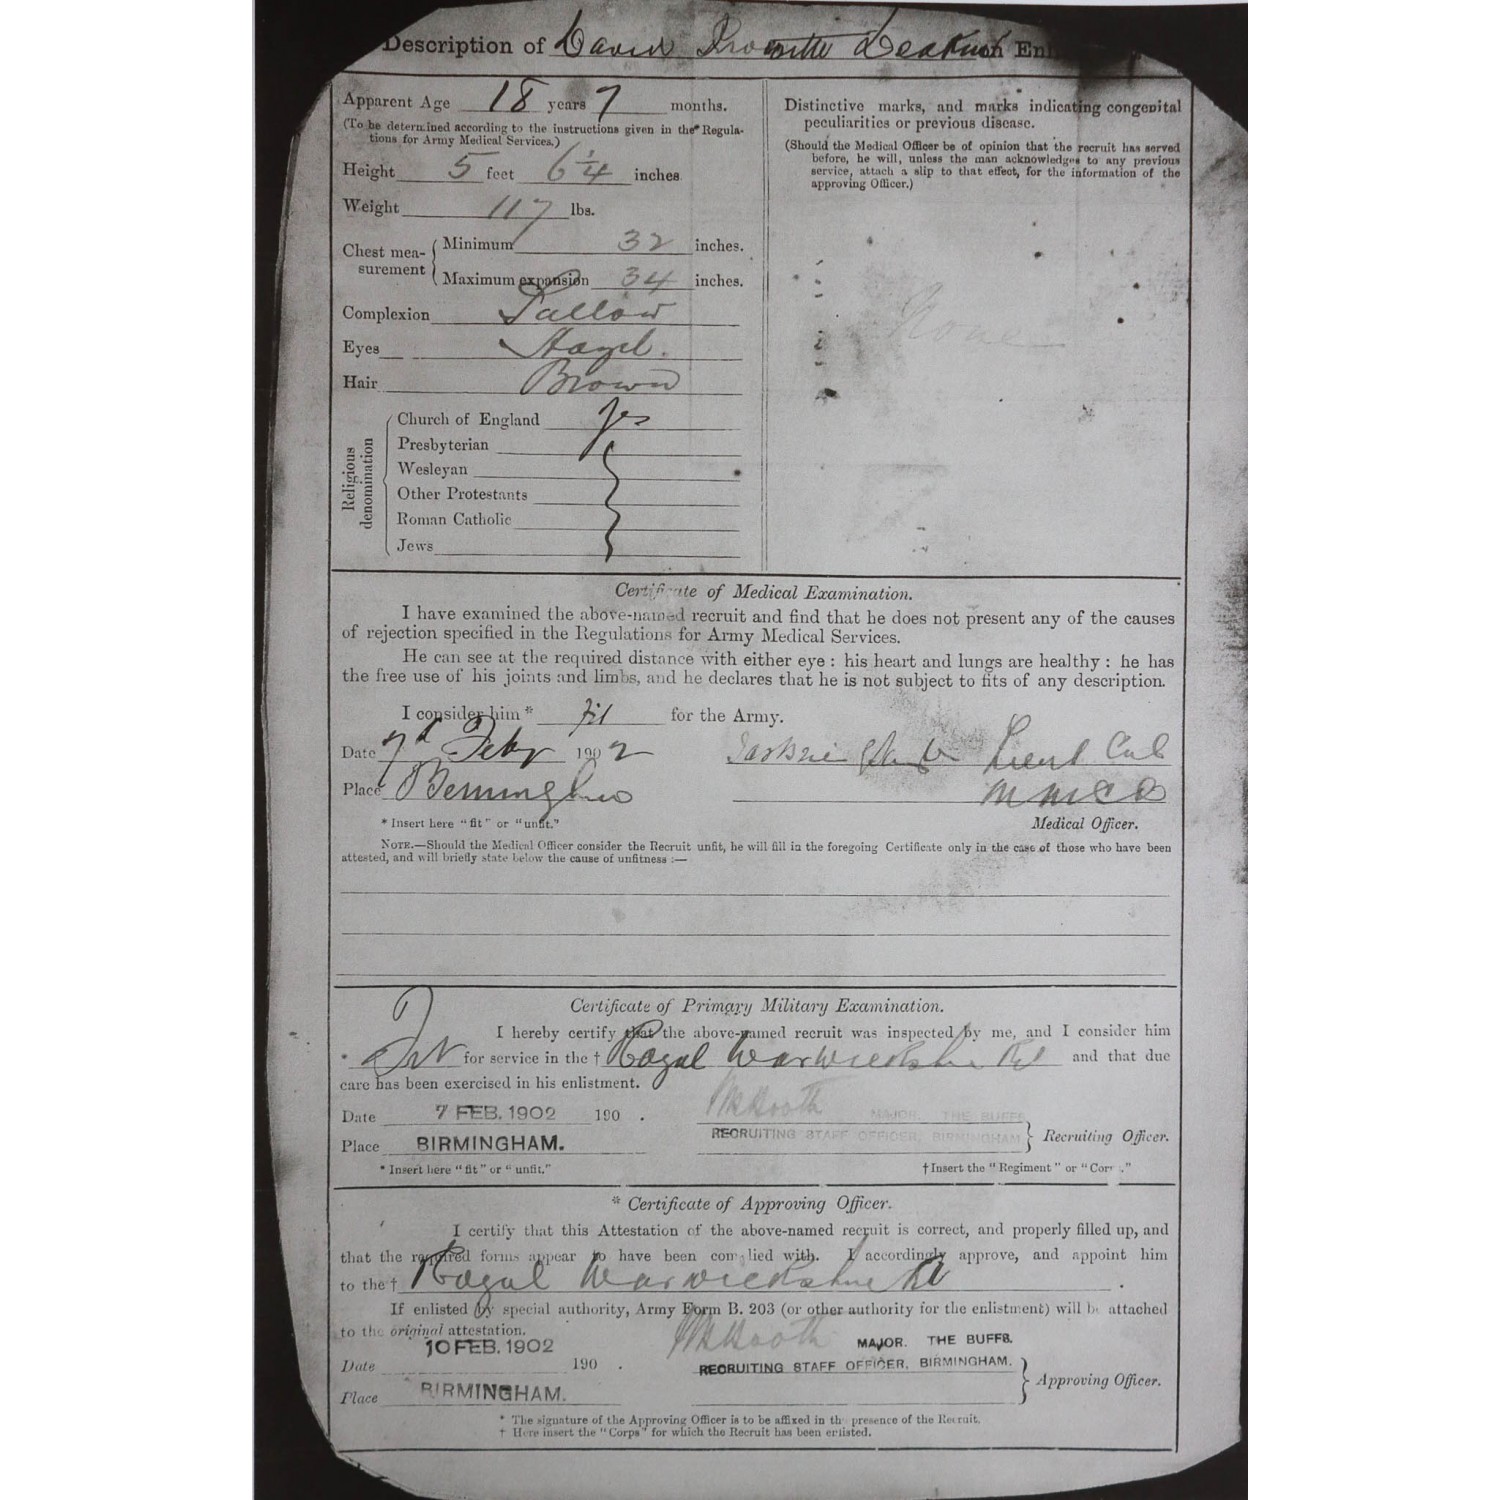 Description of David Deakin on
Apparent Age 18 years 7 months.
(To be determined according to the instructions given in the Regula-
tions for Army Medical Services.)
Height 5 feet 6 1/4 inches
Weight 117 lbs.
Chest mea-
surement
Minimum 32 inches.
Maximum expansion 34 inches.
Complexion Sallow
Eyes Hazel.
Hair Brown
Religious
denomination
Church of England Yes
Presbyterian
Wesleyan
Other Protestants
Roman Catholic
Jews
Distinctive marks, and marks indicating congenital
peculiarities or previous disease.
(Should the Medical Officer be of opinion that the recruit has served
before, he will, unless the man acknowledges to any previous
service, attach a slip to that effect, for the information of the
approving Officer.)
None
Certificate of Medical Examination.
I have examined the above-named recruit and find that he does not present any of the causes
of rejection specified in the Regulations for Army Medical Services.
He can see at the required distance with either eye : his heart and lungs are healthy : he has
the free use of his joints and limbs, and he declares that he is not subject to fits of any description.
I consider him * fit for the Army.
Date 7th Feby 1902 Lieut Col
Place Birmingham
* Insert here "fit" or "unfit." Medical Officer.
NOTE.—Should the Medical Officer consider the Recruit unfit, he will fill in the foregoing Certificate only in the case of those who have been
attested, and will briefly state below the cause of unfitness :—
Certificate of Primary Military Examination.
I hereby certify that the above-named recruit was inspected by me, and I consider him
* Fit for service in the † Royal Warwickshire Rd and that due
care has been exercised in his enlistment.
Date 7 FEB. 1902 190 . MAJOR. THE BUFFS
Place BIRMINGHAM. RECRUITING STAFF OFFICER, BIRMINGHAM Recruiting Officer.
* Insert here "fit" or "unfit." † Insert the "Regiment" or "Corps."
* Certificate of Approving Officer.
I certify that this Attestation of the above-named recruit is correct, and properly filled up, and
that the required forms appear to have been complied with. I accordingly approve, and appoint him
to the † Royal Warwickshire Rd .
If enlisted by special authority, Army Form B. 203 (or other authority for the enlistment) will be attached
to the original attestation.
10 FEB. 1902 MAJOR. THE BUFFS.
Date 190 . RECRUITING STAFF OFFICER, BIRMINGHAM.
Place BIRMINGHAM. Approving Officer.
* The signature of the Approving Officer is to be affixed in the presence of the Recruit.
† Here insert the "Corps" for which the Recruit has been enlisted.